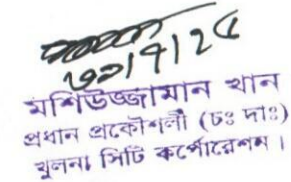 মশিউজ্জামান খান
প্রধান প্রকৌশলী (চঃ দাঃ)
খুলনা সিটি কর্পোরেশন।